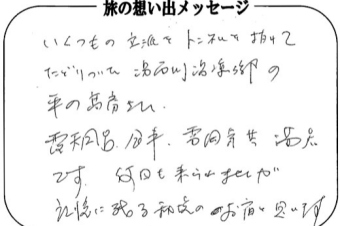 旅の想い出メッセージ
いくつもの トンネルを抜けて
たどりついた 湯西川温泉郷の
平の高房さん.
露天風呂. 食事. 雰囲気共 満点
です. 何回も来られませんが
記憶に残る秘境のお宿と思います